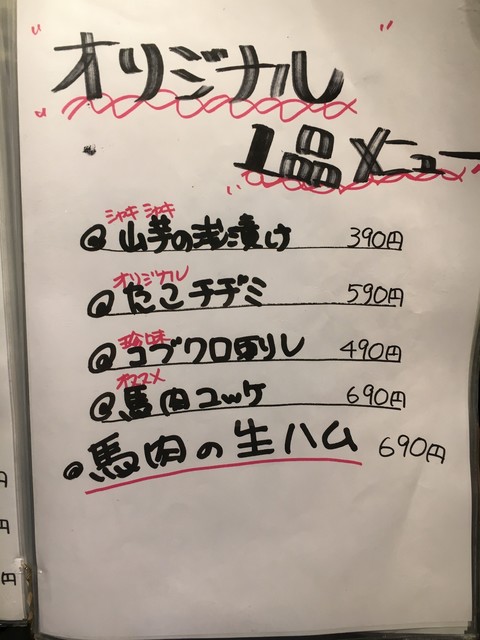 "オリジナル"
"1品メニュー
シャキシャキ
@山芋の浅漬け 390円
オリジナル
@たこチヂミ 590円
珍味
@コブクロ刺し 490円
オススメ
@馬肉ユッケ 690円
@馬肉の生ハム 690円
円
円
円